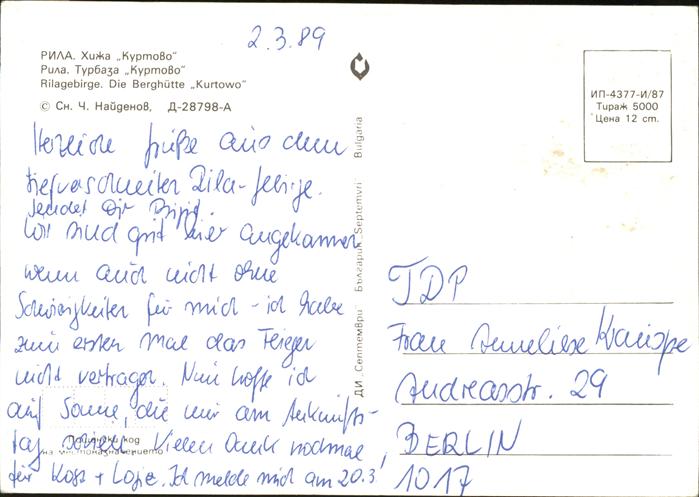 2.3.89
РИЛА. Хижа „Куртово“
Рила. Турбаза „Куртово“
Rilagebirge. Die Berghütte „Kurtowo“
© Сн. Ч. Найденов, Д-28798-А
Herzliche Grüße aus dem
tiefverschneiten Rila-Gebirge.
sendet Dir
Wir sind gut hier angekommen
wenn auch nicht ohne
Schwierigkeiten für mich - ich habe
zum ersten Mal das Fliegen
nicht vertragen. Nun hoffe ich
auf Sonne, die mir am Ankunfts-
tag schien. Vielen Dank nochmal
für Koss + Loge. Ich melde mich am 20.3!
Пощенски код
на местоназначението
ДИ „Септември“ България „Septemvri“ Bulgaria
ИП-4377-И/87
Тираж 5000
Цена 12 ст.
TDP
Frau Anneliese
Andreasstr. 29
BERLIN
1017